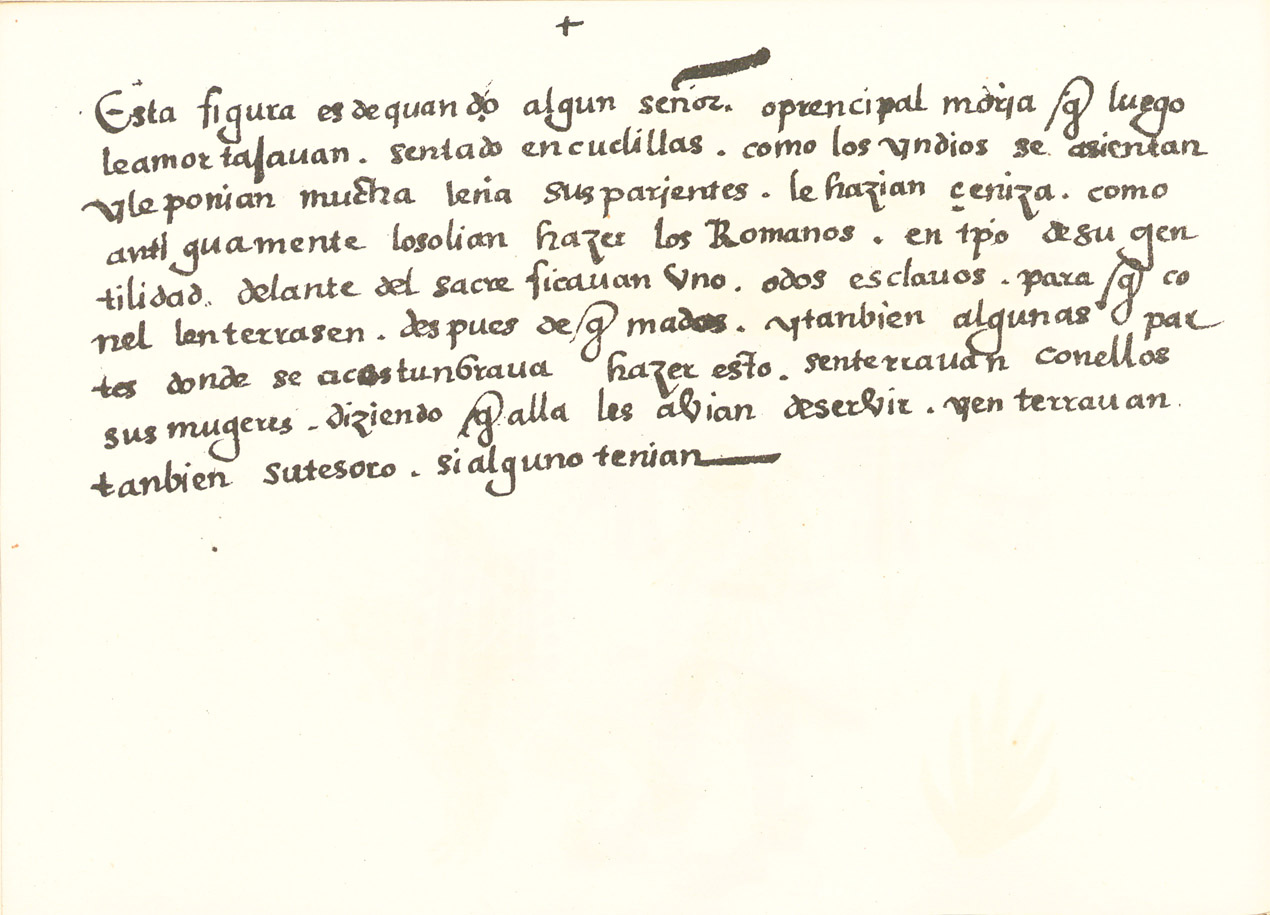 +
Esta figura es de quando algun señor. o prencipal moria q̃ luego
le amortajauan. sentado en cuclillas. como los yndios se asientan
y le ponian mucha leña sus parientes. le hazian çeniza. como
antiguamente lo solian hazer los Romanos. en tp̃o de su gen
tilidad. delante del sacreficauan vno. o dos esclauos. para q̃ co
nel lenterrasen. despues de q̃mados. y tanbien algunas par
tes donde se acostunbraua hazer esto. senterrauan con ellos
sus mugeres. diziendo q̃ alla les avian de servir. y enterrauan
tanbien su tesoro. si alguno tenian